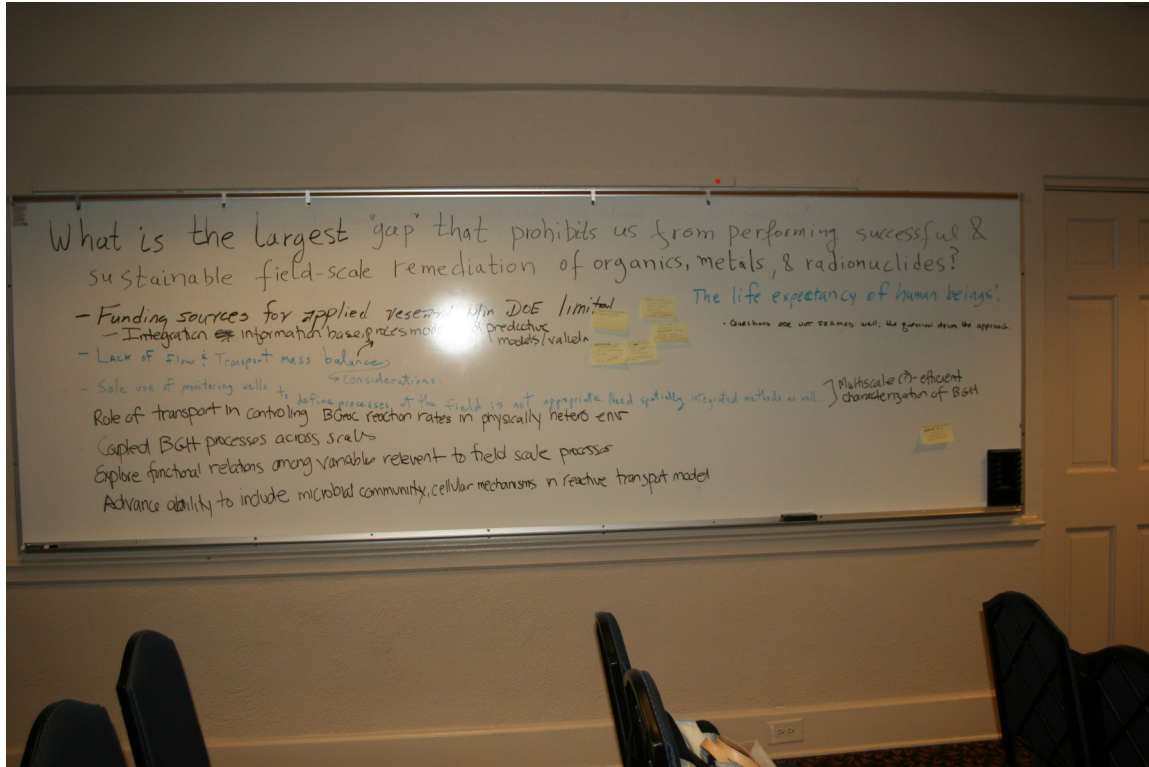 What is the largest "gap" that prohibits us from performing successful &
sustainable field-scale remediation of organics, metals, & radionuclides?
- Funding sources for applied w/in DOE limited
- Integration information base, process predictive
models/
- Lack of flow & Transport mass balance
considerations.
- Sole use of monitoring wells
to define processes at the field is not appropriate. Need spatially integrated methods as well.
Role of transport in controling BGeoc reaction rates in physically hetero env
Coupled BGH processes across scales
Explore functional relations among variables relevent to field scale processes
Advance ability to include microbial community, cellular mechanisms in reactive transport model
The life expectancy of human beings!
• Questions are not framed well; the question drives the approach
Multiscale (?)-efficient
characterization of BGH